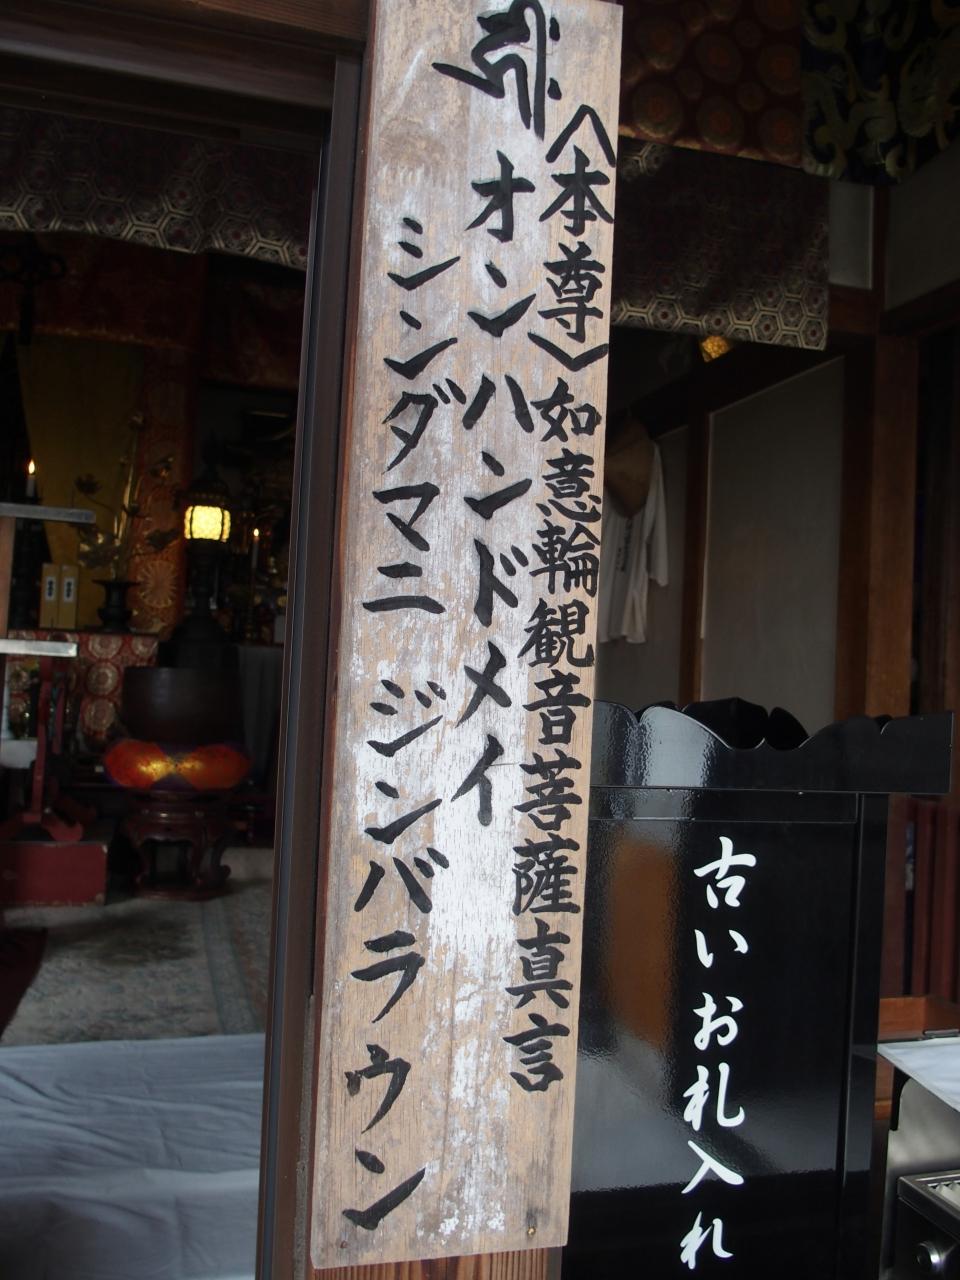 〈本尊〉如意輪観音菩薩真言
オンハンドメイ
シンダマニ ジンバラウン
古いお札入れ